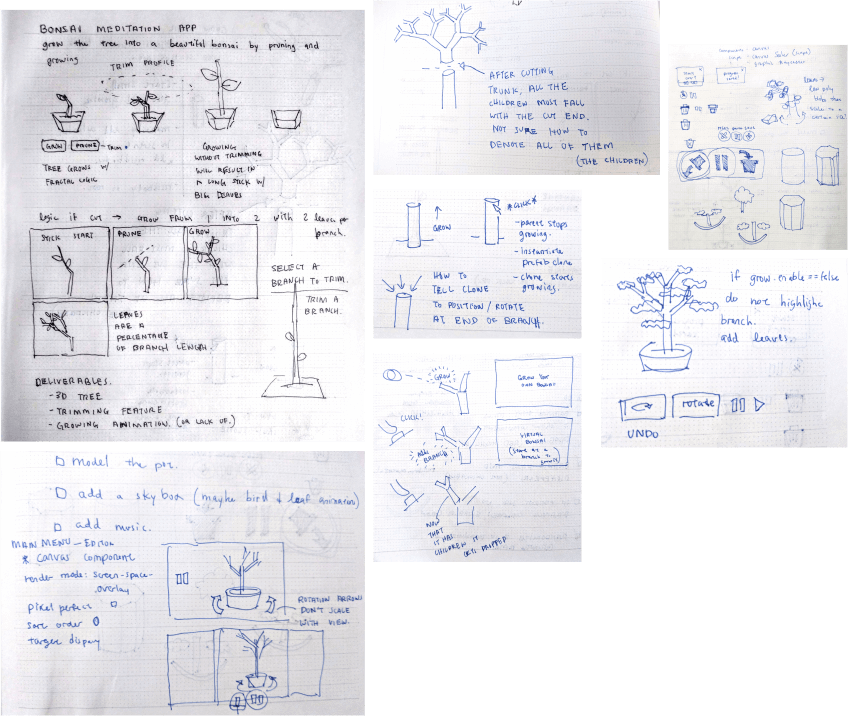 BONSAI MEDITATION APP
grow the tree into a beautiful bonsai by pruning and
growing
TRIM PROFILE
GROW PRUNE TRIM
TREE GROWS W/
FRACTAL LOGIC
GROWING
WITHOUT TRIMMING
WILL RESULT IN
A LONG STICK W/
BIG LEAVES
logic if cut → grow from 1 into 2 with 2 leaves per
branch.
STICK START
PRUNE
GROW
SELECT A
BRANCH TO TRIM.
TRIM A
BRANCH.
LEAVES
ARE A
PERCENTAGE
OF BRANCH LENGTH.
DELIVERABLES.
- 3D TREE
- TRIMMING FEATURE
- GROWING ANIMATION. (OR LACK OF.)
AFTER CUTTING
TRUNK, ALL THE
CHILDREN MUST FALL
WITH THE CUT END.
NOT SURE HOW TO
DENOTE ALL OF THEM
(THE CHILDREN)
GROW
*CLICK*
- parent stops
growing.
- instantiate
prefab clone
- clone starts
growing.
HOW TO
TELL CLONE
TO POSITION/ROTATE
AT END OF BRANCH.
GROW
GROW YOUR
OWN BONSAI
CLICK!
NEW
BRANCH
VIRTUAL
BONSAI
NOW
THAT
IT HAS
CHILDREN IT
GETS
if grow.enable == false
do not highlight
branch.
add leaves.
rotate
UNDO
□ model the pot.
□ add a sky box (maybe bird & leaf animation)
□ add music.
MAIN MENU - EDITOR
* Canvas component
render mode: screen-space-
overlay
pixel perfect □
sort order 0
target display
ROTATION ARROWS
DON'T SCALE
WITH VIEW.